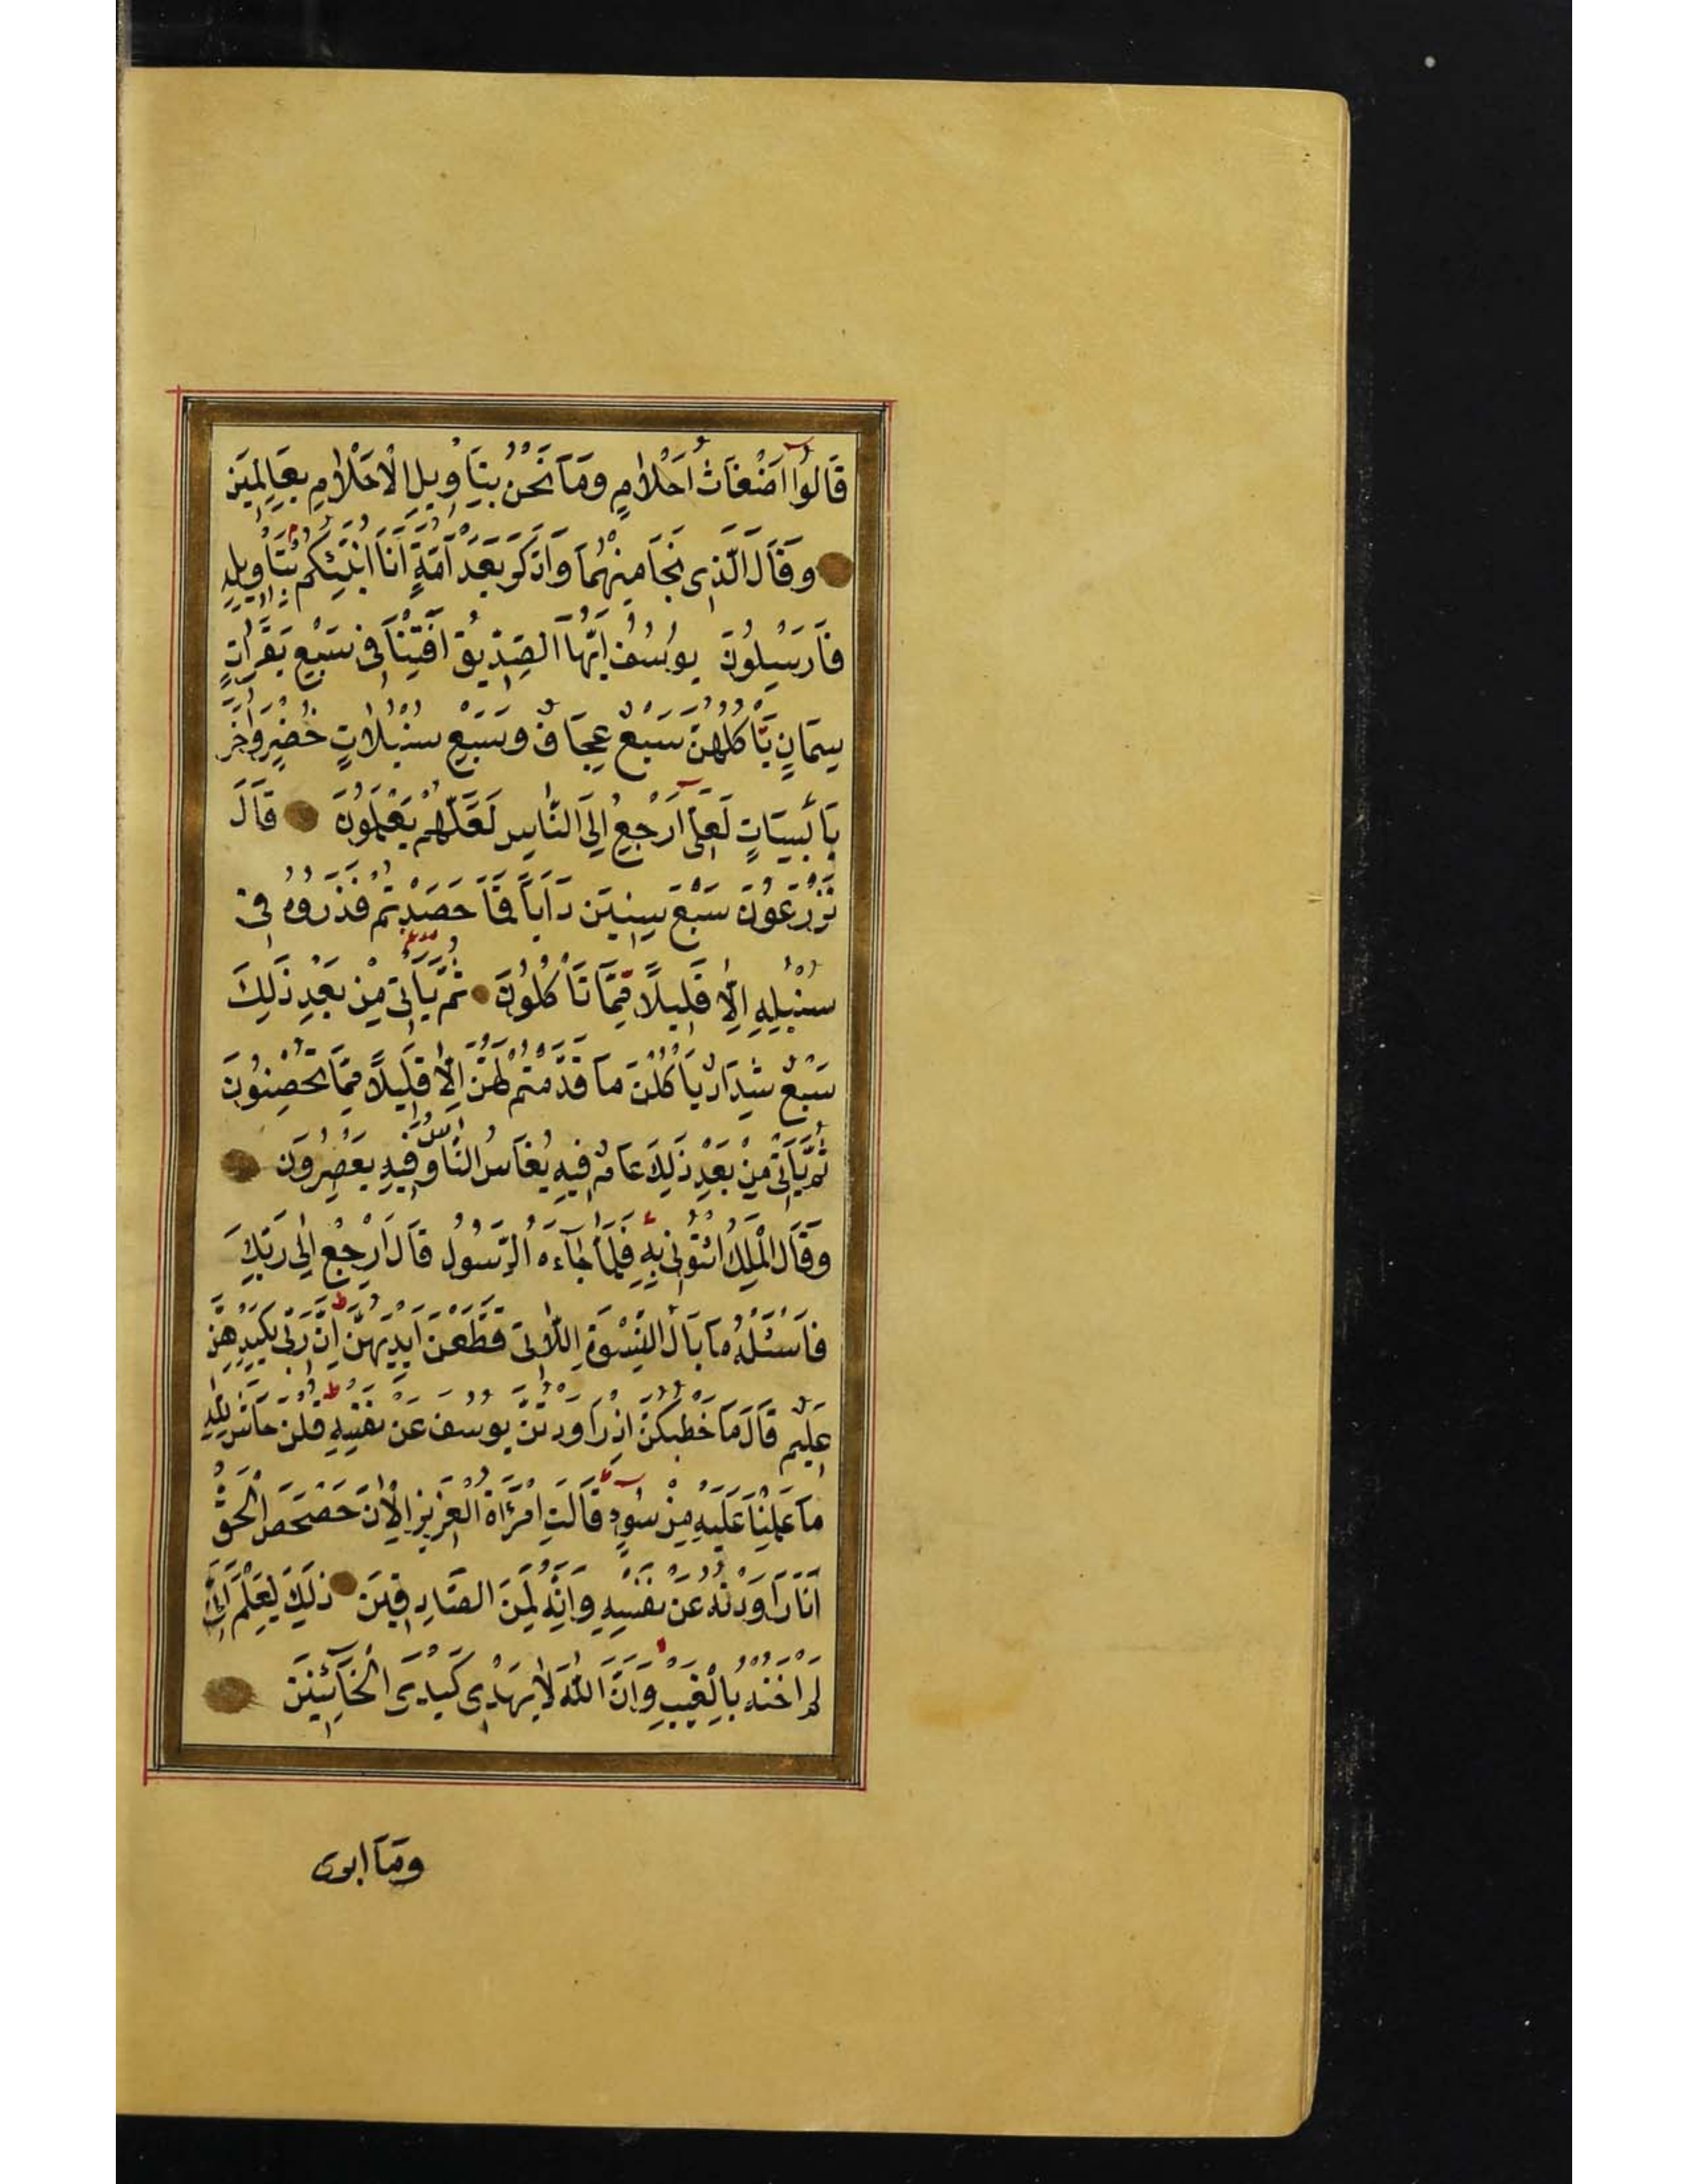 قَالُوا اَضْغَاثُ اَحْلَامٍ وَمَا نَحْنُ بِتَاْوِيلِ الْاَحْلَامِ بِعَالِمِينَ
وَقَالَ الَّذِى نَجَا مِنْهُمَا وَادَّكَرَ بَعْدَ اُمَّةٍ اَنَا اُنَبِّئُكُمْ بِتَاْوِيلِهِ
فَاَرْسِلُونَ يُوسُفُ اَيُّهَا الصِّدِّيقُ اَفْتِنَا فِى سَبْعِ بَقَرَاتٍ
سِمَانٍ يَاْكُلُهُنَّ سَبْعٌ عِجَافٌ وَسَبْعِ سُنْبُلَاتٍ خُضْرٍ وَاُخَرَ
يَابِسَاتٍ لَعَلِّى اَرْجِعُ اِلَى النَّاسِ لَعَلَّهُمْ يَعْلَمُونَ قَالَ
تَزْرَعُونَ سَبْعَ سِنِينَ دَاَبًا فَمَا حَصَدْتُمْ فَذَرُوهُ فِى
سُنْبُلِهِ اِلَّا قَلِيلًا مِمَّا تَاْكُلُونَ ثُمَّ يَاْتِى مِنْ بَعْدِ ذَلِكَ
سَبْعٌ شِدَادٌ يَاْكُلْنَ مَا قَدَّمْتُمْ لَهُنَّ اِلَّا قَلِيلًا مِمَّا تُحْصِنُونَ
ثُمَّ يَاْتِى مِنْ بَعْدِ ذَلِكَ عَامٌ فِيهِ يُغَاثُ النَّاسُ وَفِيهِ يَعْصِرُونَ
وَقَالَ الْمَلِكُ ائْتُونِى بِهِ فَلَمَّا جَآءَهُ الرَّسُولُ قَالَ ارْجِعْ اِلَى رَبِّكَ
فَاسْئَلْهُ مَا بَالُ النِّسْوَةِ اللَّاتِى قَطَّعْنَ اَيْدِيَهُنَّ اِنَّ رَبِّى بِكَيْدِهِنَّ
عَلِيمٌ قَالَ مَا خَطْبُكُنَّ اِذْ رَاوَدْتُنَّ يُوسُفَ عَنْ نَفْسِهِ قُلْنَ حَاشَ لِلَّهِ
مَا عَلِمْنَا عَلَيْهِ مِنْ سُوءٍ قَالَتِ امْرَاَةُ الْعَزِيزِ الْاٰنَ حَصْحَصَ الْحَقُّ
اَنَا رَاوَدْتُهُ عَنْ نَفْسِهِ وَاِنَّهُ لَمِنَ الصَّادِقِينَ ذَلِكَ لِيَعْلَمَ اَنِّى
لَمْ اَخُنْهُ بِالْغَيْبِ وَاَنَّ اللَّهَ لَا يَهْدِى كَيْدَ الْخَآئِنِينَ
وَمَا ابرى